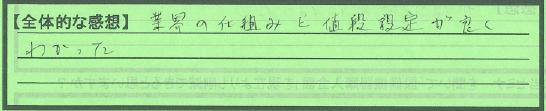 【全体的な感想】 業界の仕組みと値段設定が良く
わかった